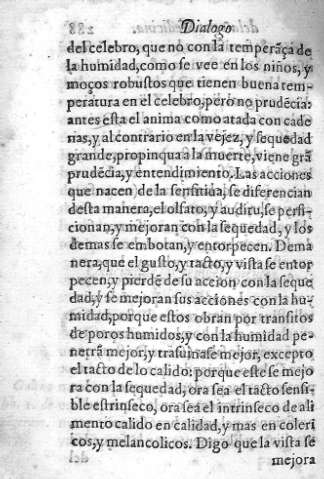 Dialogo
del celebro, que no con la temperãça de
la humidad, como se vee en los niños, y
moços robustos que tienen buena tem-
peratura en el celebro, pero no prudẽcia:
antes esta el anima como atada con cade
nas, y al contrario en la vejez, y sequedad
grande, propinqua à la muerte, viene grã
prudẽcia, y entendimiento. Las acciones
que nacen de la sensitiua, se diferencian
desta manera, el olfato, y auditu, se perfi-
cionan, y mejoran con la sequedad, y los
demas se embotan, y entorpecen. De ma
nera, que el gusto, y tacto, y vista se entor
pecen, y pierdẽ de su accion con la seque
dad, y se mejoran sus acciones con la hu-
midad, porque estos obran por transitos
de poros humidos, y con la humidad pe-
netrã mejor, y trasuinase mejor, excepto
el tacto de lo calido: porque este se mejo
ra con la sequedad, ora sea el tacto sensi-
ble estrinseco, ora sea el intrinseco de ali
mento calido en calidad, y mas en coleri
cos, y melancolicos. Digo que la vista se
mejora